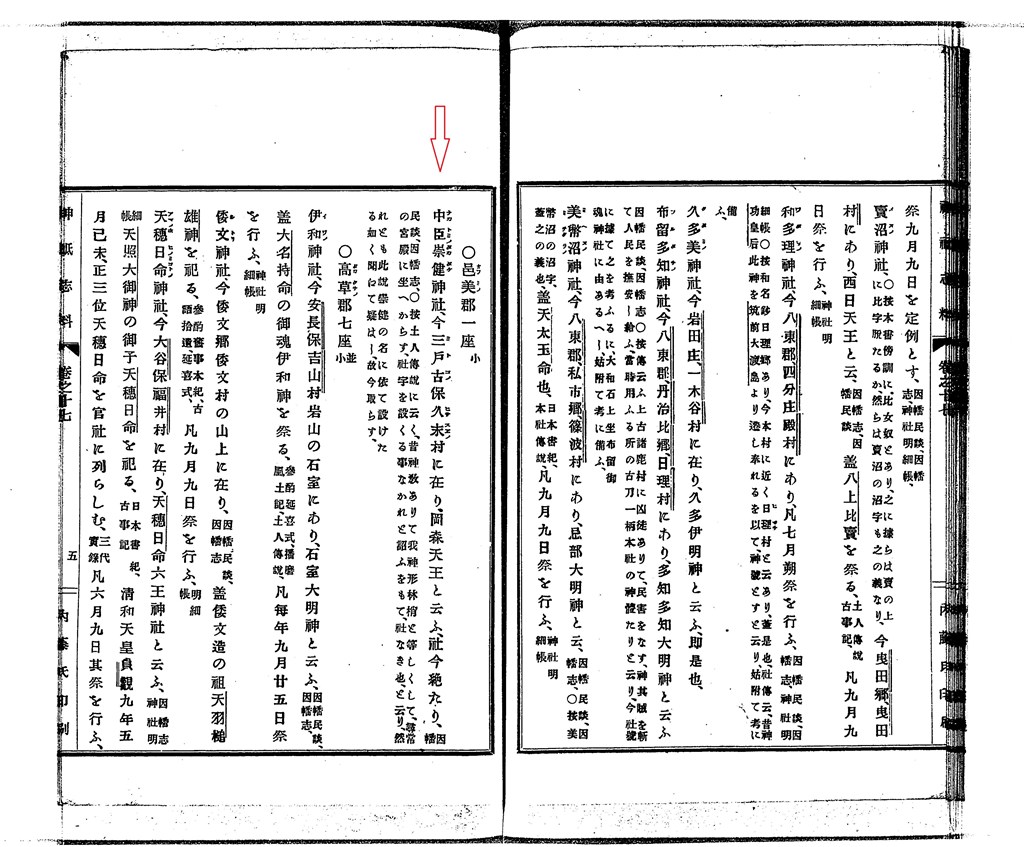 祭九月九日を定例とす、因幡民談、因幡志、神社明細帳、
賣沼神社、〇按本書傍訓に、比女奴とあり、之に據らは賣の上に比字脫たるか然らは賣沼の沼字も之の義なり、今曳田郷、曳田
村にあり、西日天王と云、因幡志、因幡民談 蓋八上比賣を祭る、土人傳說古事記、凡九月九
日祭を行ふ、神社明細帳
和多理神社、今八東郡四分庄殿村にあり、凡七月朔祭を行ふ、因幡民談、因幡志、神社明
細帳〇按和名鈔日理郷あり、今本村に近く日理村と云あり、蓋是也、社傳云昔神功皇后此神を筑前大渡島より遷し來れるを以て、神號とすと云り、姑附て考に
備ふ、
久多美神社、今岩田庄、一木谷村に在り、久多伊明神と云ふ、即是也、
布留多知神社、今八東郡、丹治比郷、日理村にあり、多知多知大明神と云ふ
因幡民談、因幡志〇按傳云ふ上古諸鹿村に凶徒ありて、民害をなす、神其賊を斬て人民を撫安し給ふ、當時用ふる所の古刀一柄本社の神體たりと云り、今社號
に據て之を考ふるに大和石上坐布留御魂神社に由あるへし姑附て考に備ふ、
美幣沼神社、今八東郡、私市郷、篠波村にあり、忌部大明神と云、因幡民談、因幡志、〇按美
幣沼の沼字、蓋之の義也、蓋天太玉命也、日本書紀、本社傳說、凡九月九日祭を行ふ、神社明細帳
〇邑美郡一座小
中臣崇健神社、今三戸古保久末村に在り、岡森天王と云ふ、社今絶たり、因幡
民談因幡志、〇按土人傳說に云く、昔神教ありて我神形林檜と等しくして、尋常の宮殿に坐へからす、社字を設くる事なかれと詔ふをもて社なき也、と云り、然
れとも此說崇健の名に依て設けたる如く聞えて疑はし、故今取らす、
〇高草郡七座並小
伊和神社、今安長保吉山村岩山の石室にあり、石室大明神と云ふ、因幡民談、因幡志、
蓋大名持命の御魂伊和神を祭る、參酌延喜式、播磨風土記、土人傳說、凡每年九月廿五日祭
を行ふ、神社明細帳
倭文神社、今倭文郷倭文村の山上に在り、因幡民談、因幡志 蓋倭文造の祖天羽槌
雄神を祀る、參酌舊事本紀、古語拾遺延喜式、凡九月九日祭を行ふ、明細帳
天穗日命神社、今大谷保福井村に在り、天穗日命六王神社と云ふ、因幡志神社明
細帳 天照大御神の御子天穗日命を祀る、日本書紀、古事記 清和天皇貞觀九年五
月己未、正三位天穗日命を官社に列らしむ、三代實錄 凡六月九日其祭を行ふ、
神祇志料
卷之十七
五
內藤氏印刷